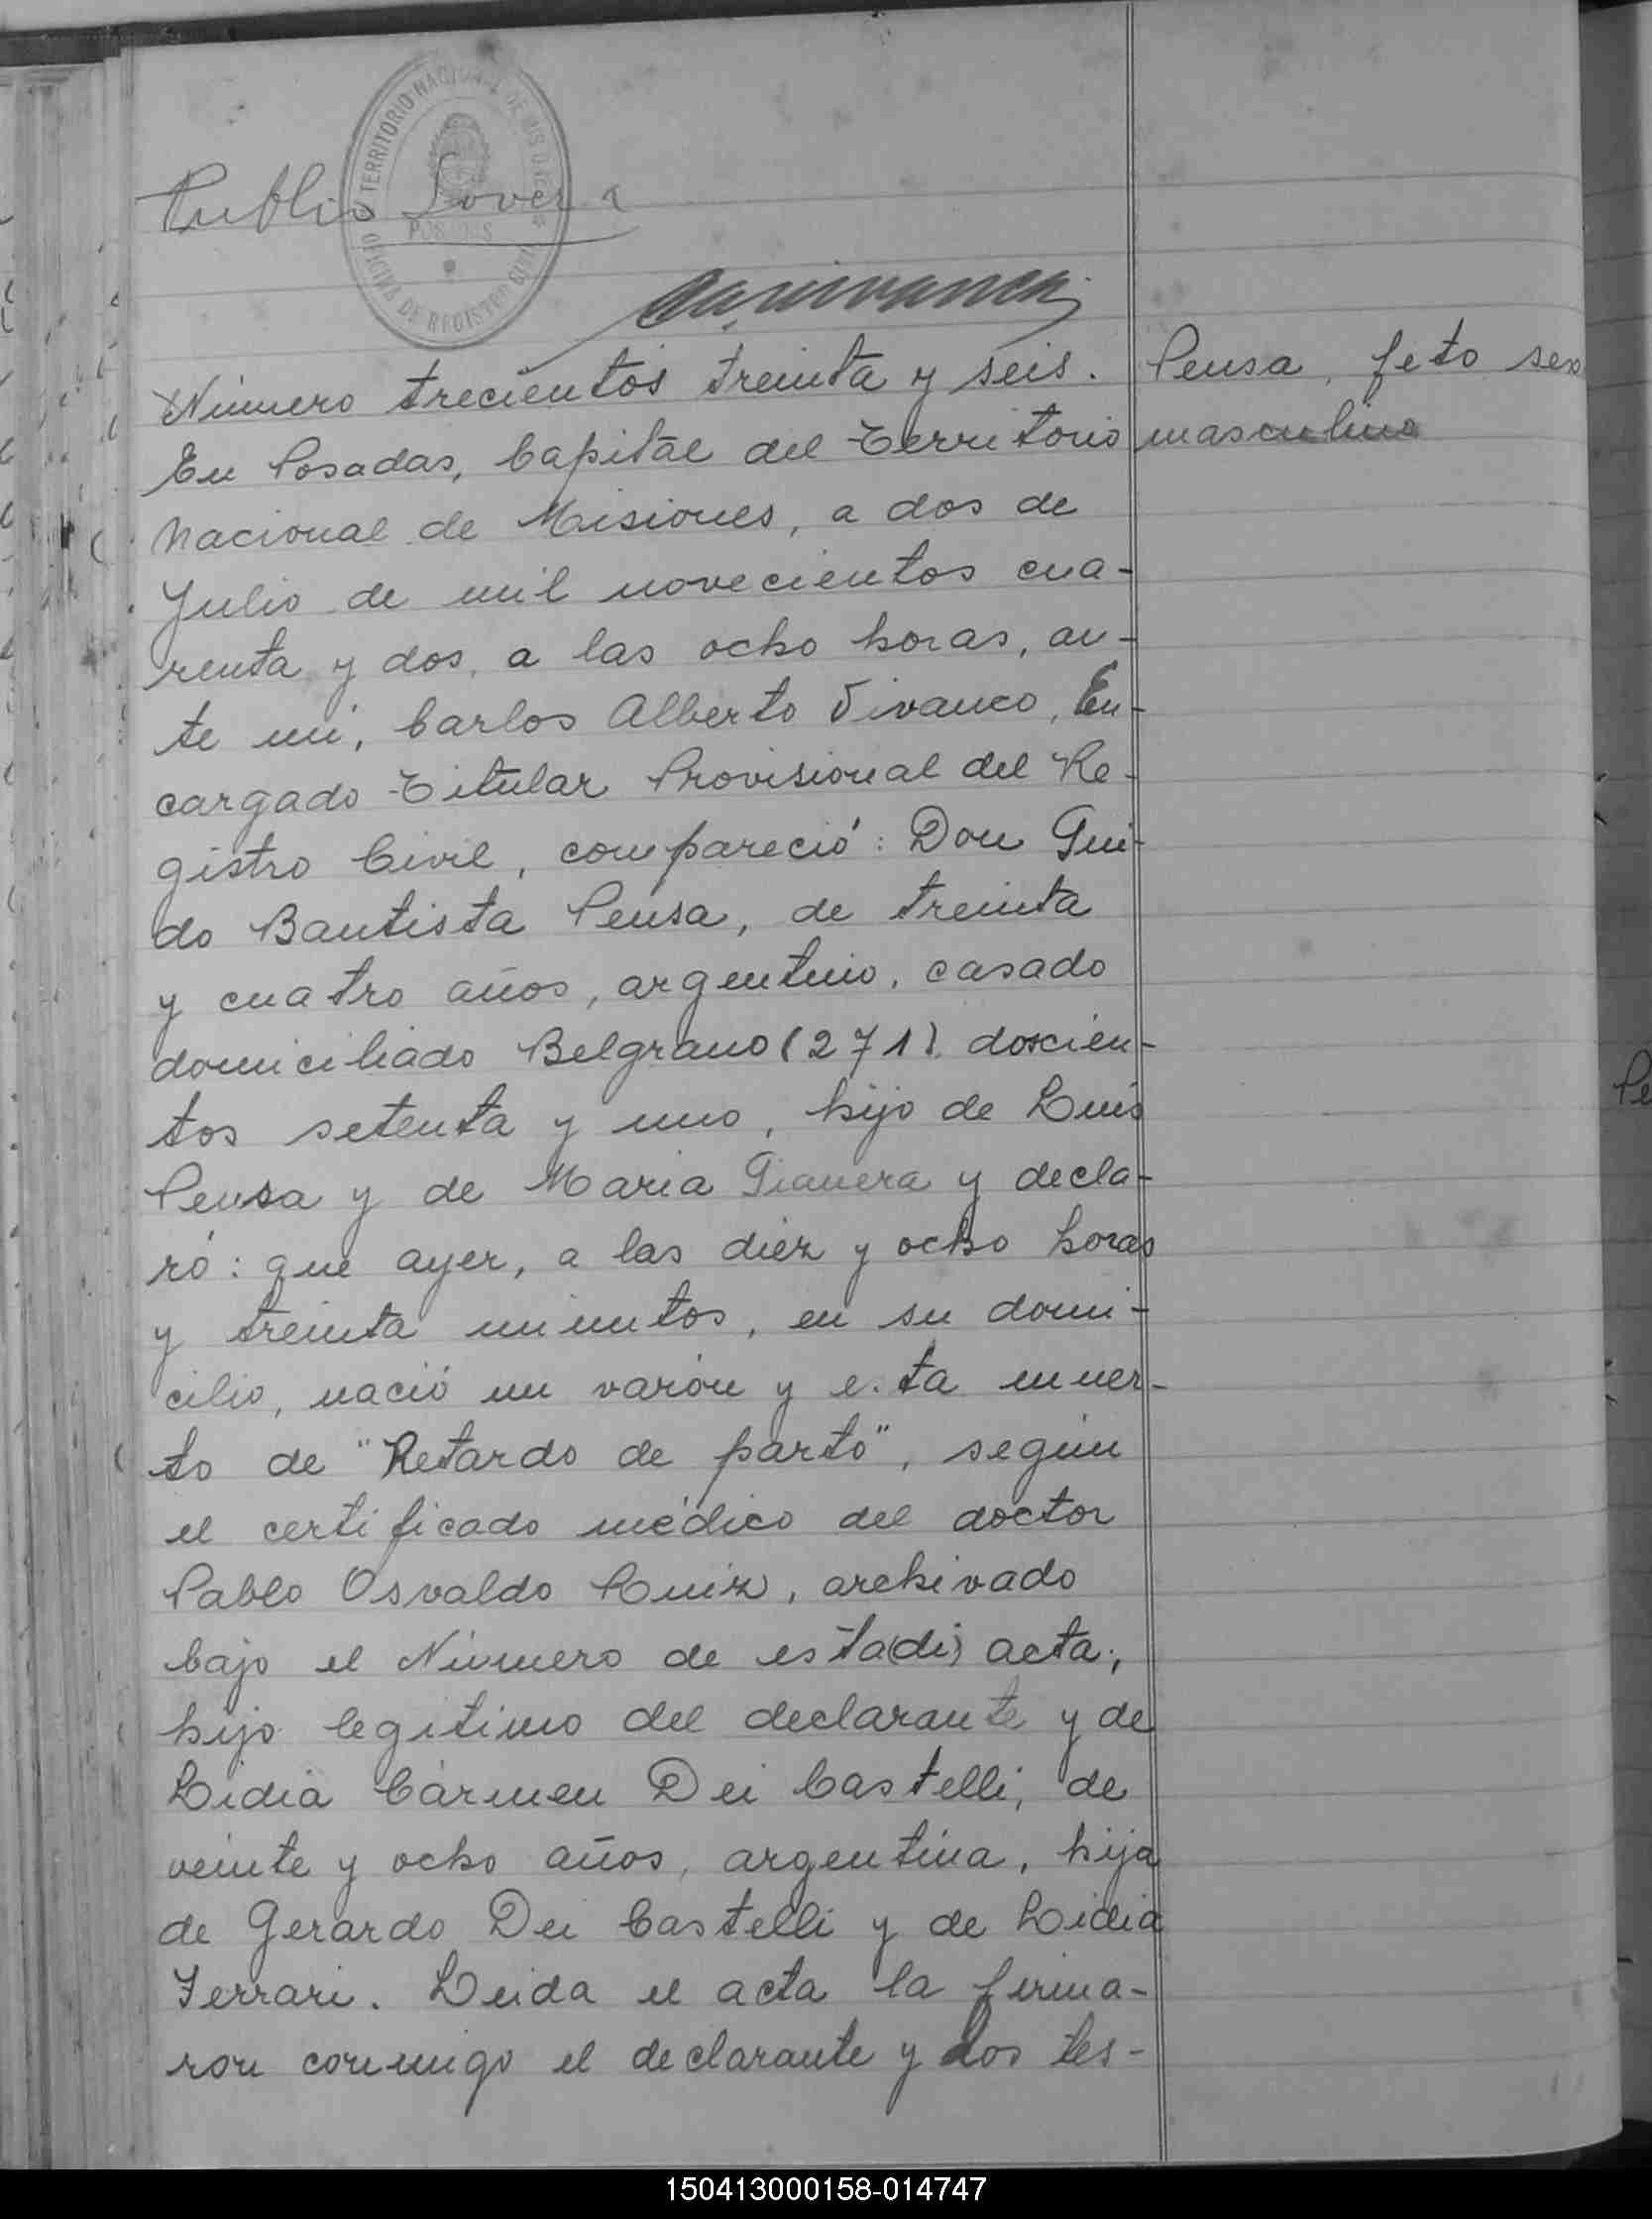 TERRITORIO NACIONAL DE MISIONES
POSADAS
OFICINA DE REGISTRO CIVIL
Publio Lovera
Número trecientos treinta y seis.
Pensa, feto sexo
masculino
En Posadas, Capital del Territorio
Nacional de Misiones, a dos de
Julio de mil novecientos cua-
renta y dos, a las ocho horas, an-
te mi, Carlos Alberto Vivanco, En-
cargado Titular Provisional del Re-
gistro Civil, compareció: Don Gui-
do Bautista Pensa, de treinta
y cuatro años, argentino, casado
domiciliado Belgrano (271) doscien-
tos setenta y uno, hijo de Luis
Pensa y de Maria Gianera y decla-
ró: que ayer, a las diez y ocho horas
y treinta minutos, en su domi-
cilio, nació un varón y e.ta muer-
to de "Retardo de parto", según
el certificado médico del doctor
Pablo Osvaldo Ruiz, archivado
bajo el Número de esta(di) acta;
hijo legitimo del declarante y de
Lidia Cármen Dei Castelli, de
veinte y ocho años, argentina, hija
de Gerardo Dei Castelli y de Lidia
Ferrari. Leida el acta la firma-
ron conmigo el declarante y los tes-
Pe
150413000158-014747